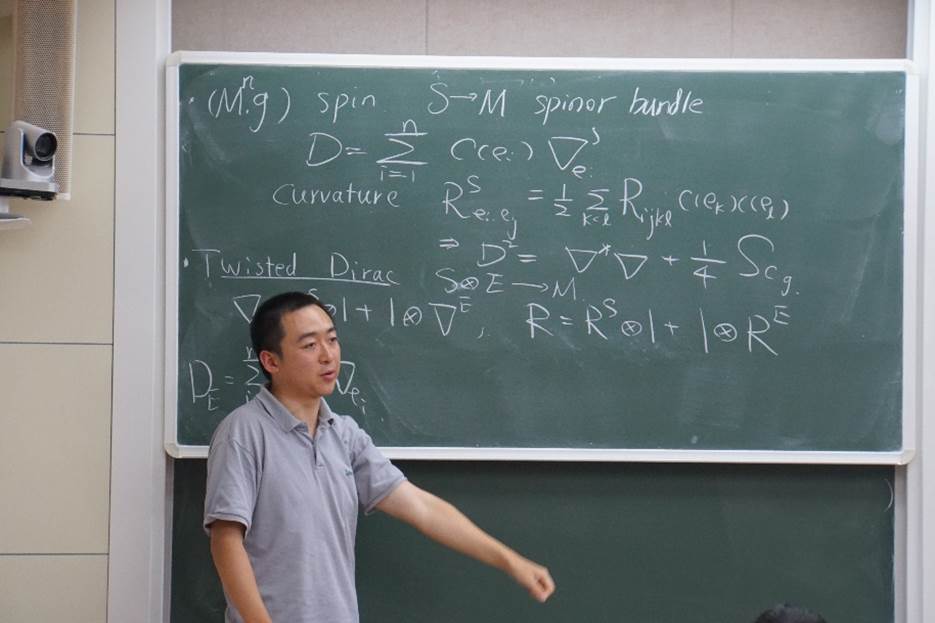 · (Mⁿ,g) spin S→M spinor bundle
D = ∑ᵢ₌₁ⁿ C(eᵢ) ∇ˢ_eᵢ
Curvature Rˢ_eᵢ,eⱼ = 1/2 ∑_k<l R_ijkl C(e_k) C(e_l)
⇒ D² = ∇*∇ + 1/4 Sc_g.
· Twisted Dirac S⊗E → M
∇ ˢ⊗1 + 1⊗∇ᴱ, R = Rˢ⊗1 + 1⊗Rᴱ
D_E = ∑ ∇_eᵢ